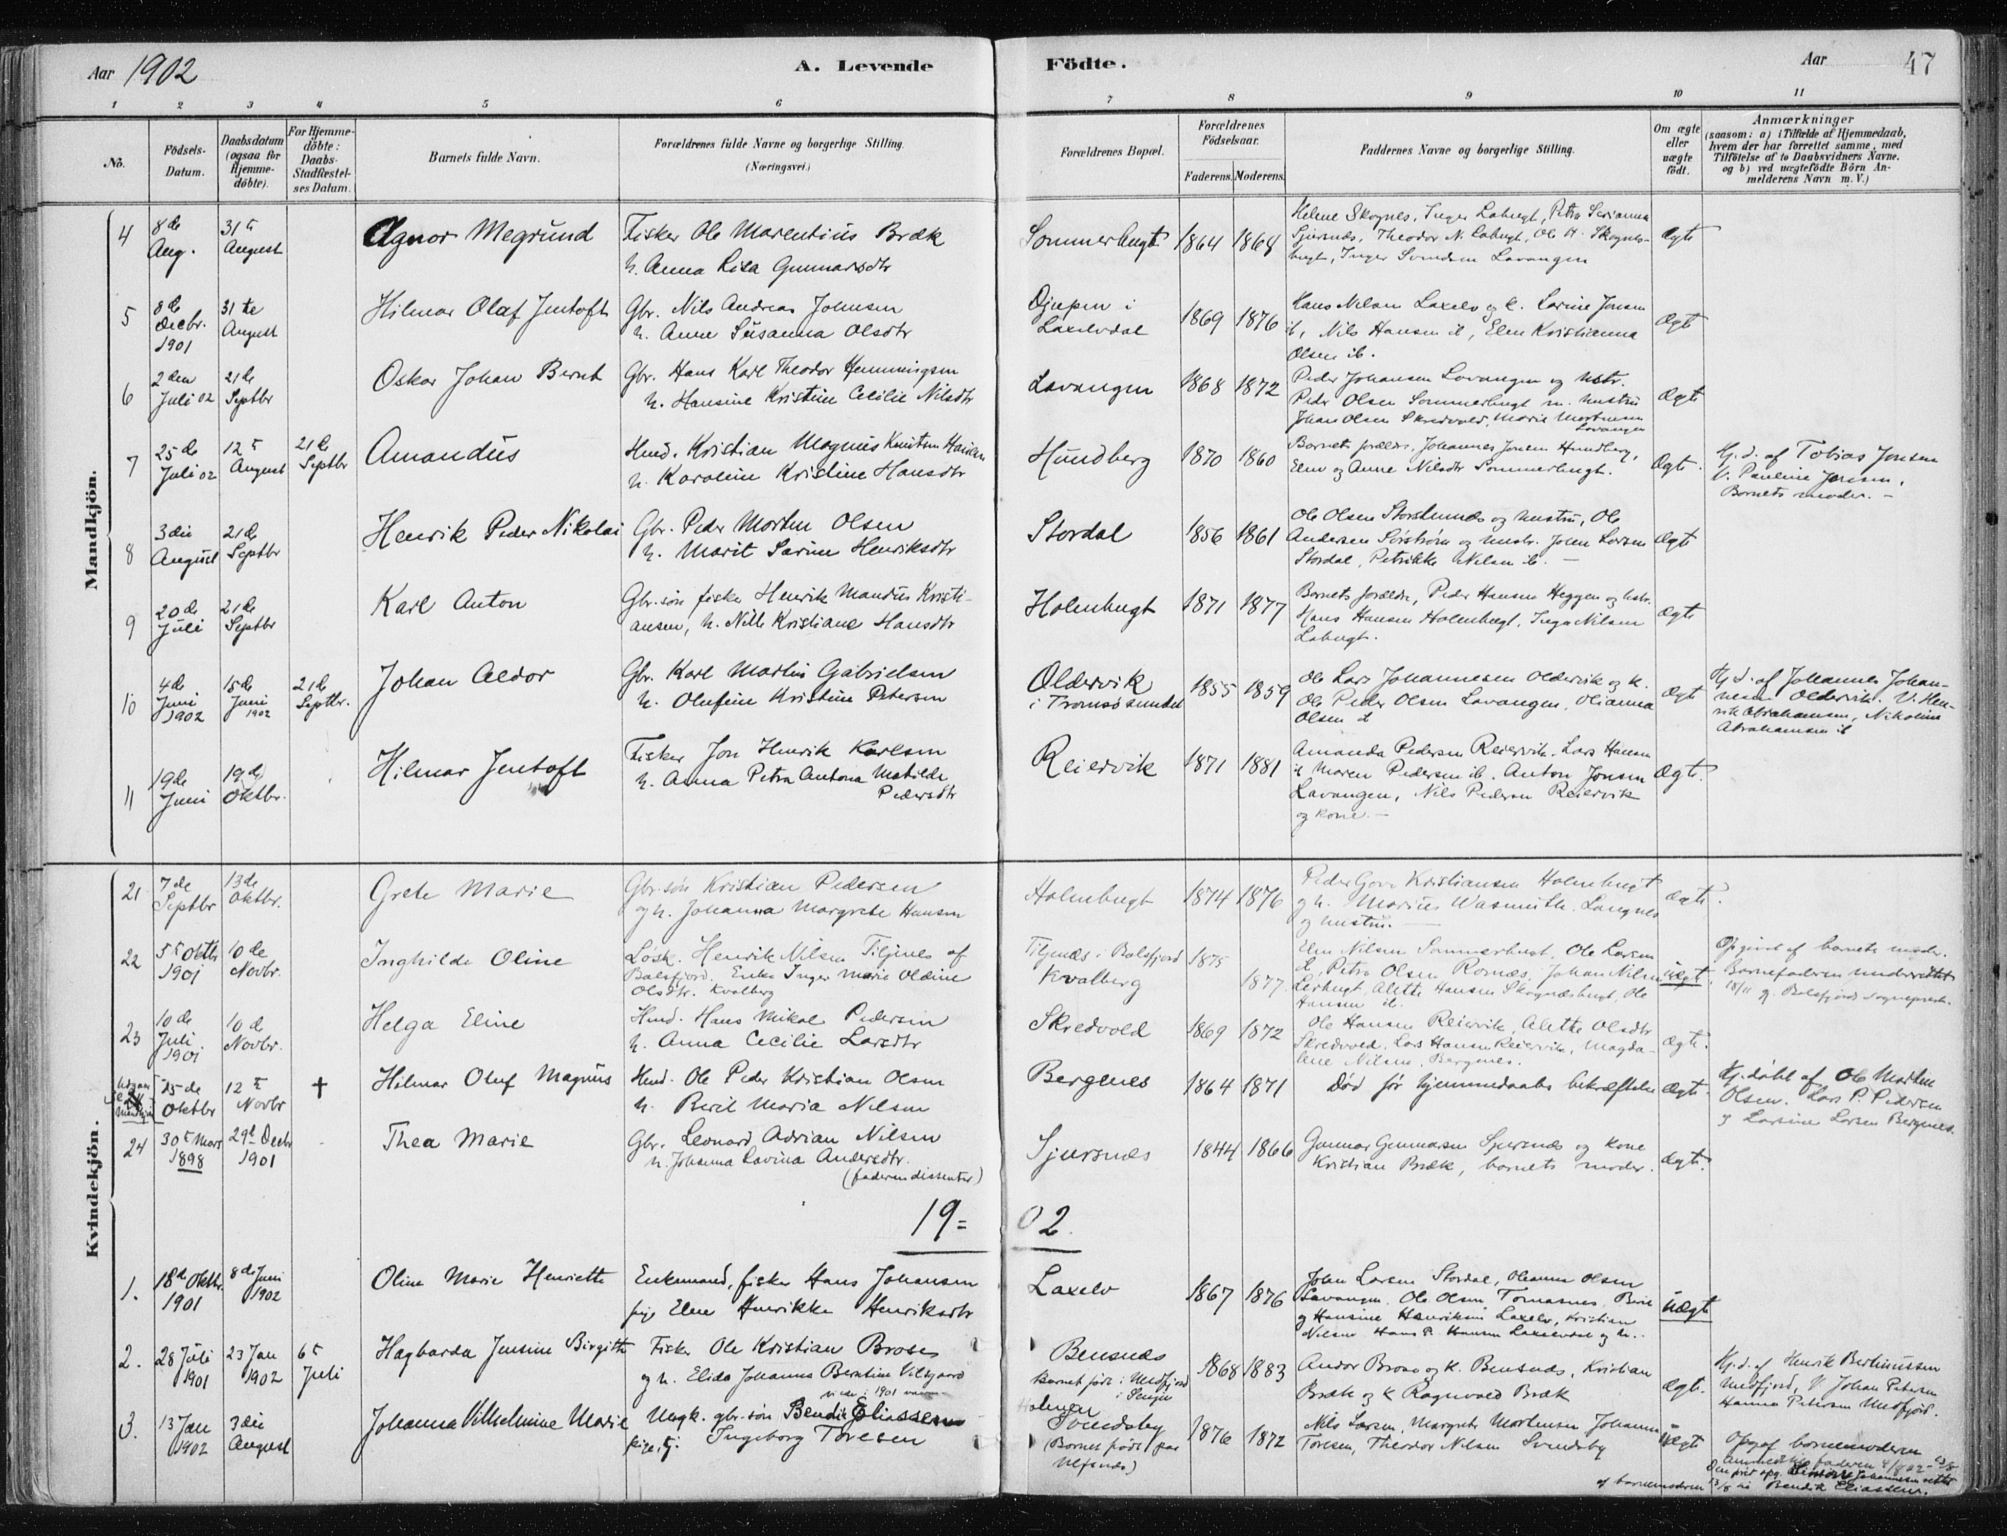 Aar 1902
A. Levende
Födte.
Aar
47
1 2 3 4 5 6 7 8 9 10 11
No.
Födsels-Datum.
Daabsdatum (ogsaa for Hjemme-döbte).
For Hjemme-döbte: Daabs-Stadfæstel-ses Datum.
Barnets fulde Navn.
Forældrenes fulde Navne og borgerlige Stilling. (Næringsvei.)
Forældrenes Bopæl.
Forældrenes Födselsaar.
Faderens. Moderens.
Faddernes Navne og borgerlige Stilling.
Om ægte eller uægte födt.
Anmærkninger
(saasom: a) i Tilfælde af Hjemmedaab,
hvem der har forrettet samme, med
Tilföielse af to Daabsvidners Navne,
og b) ved uægtefödte Börn An-
melderens Navn m. V.)
Mandkjön.
4 8de Aug. 31te August
Agnor Megrund
Fisker Ole Marentius Bræk
h. Anna Lisa Gunnarsdtr
Sommerbugt 1864 1864
Helene Skognes, Inger Labugt, Petra Serianna
Sjursnæs, Theodor N. Labugt, Ole H. Skognes-
bugt, Inger Svendsen Lavangen
Ægte
5 8de Decbr. 1901 31te August
Hilmar Olaf Jentoft
Gbr. Nils Andreas Johnsen
h. Anne Susanna Olsdtr
Djupen i Laxelvdal 1869 1876
Hans Nilsen Laxelv og k. Larine Jensen
ib, Nils Hansen ib, Elen Kristianna
Olsen ib.
Ægte
6 2den Juli 02 21de Septbr
Oskar Johan Bernt
Gbr. Hans Karl Theodor Hemmingsen
h. Hansine Kristine Cecilie Nilsdtr
Lavangen 1868 1872
Peder Johansen Lavangen og hstr.
Peder Olsen Sommerbugt m. hustru
Johan Olsen Skredvold, Marie Mortensen
Lavangen
Ægte
7 25de Juli 02 12te August 21de Septbr
Amandus
Hmd. Kristian Magnus Knutsen Hansen
h. Karoline Kristine Hansdtr
Hundberg 1870 1860
Barnets forældre, Johannes Jensen Hundberg,
Elen og Anne Nilsdtr Sommerbugt.
Ægte.
Hj.d. af Tobias Jensen
V. Pauline Jensen,
Barnets moder. –
8 3die August 21de Septbr
Henrik Peder Nikolai
Gbr. Peder Morten Olsen
h. Marit Sarine Henriksdtr
Stordal 1856 1861
Ole Olsen Storstennæs og hustru, Ole
Andersen Sörström og hustr. Johan Larsen
Stordal, Petrikke Nilsen ib. –
Ægte
9 20de Juli 21de Septbr
Karl Anton
Gbr.søn fisker Henrik Mandus Kristi-
ansen, h. Nille Kristiane Hansdtr
Holmbugt 1871 1877
Barnets forældre, Peder Hansen Heggen og hstr.
Hans Hansen Holmbugt. Inga Nilsen
Labugt.
Ægte
10 4de Juni 1902 15de Juni 1902 21de Septbr.
Johan Aldor
Gbr. Karl Martin Gabrielsen
h. Olufine Kristine Petersen
Oldervik i Tromsösundet 1855 1859
Ole Lars Johannesen Oldervik og k.
Ole Peder Olsen Lavangen, Olianna
Olsen ib
Ægte
Hj.d. af Johannes Johan-
nesen Oldervik. V. Hen-
rik Abrahamsen, Nikoline
Abrahamsen ib
11 19de Juni 19de Oktbr.
Hilmar Jentoft
Fisker Jon Henrik Karlsen
h. Anna Petra Antona Matilde
Pedersdtr
Reiervik 1871 1881
Amanda Pedersen Reiervik. Lars Hansen
ib Maren Pedersen ib. Anton Jensen
Lavangen, Nils Pedersen Reiervik
og kone. –
Ægte.
Kvindekjön.
21 7de Septbr 13de Oktbr.
Grete Marie
Gbr.søn Kristian Pedersen
og h. Johanna Margrete Hansen
Holmbugt 1874 1876
Peder Kristiansen Holmbugt
og h. Marius Wasmuth. Langnes
og hustru.
Ægte.
22 5te Oktb 1901 10de Novbr.
Inghilda Oline
Løsk. Henrik Nilsen Tiljnes af
Balsfjord, Enke Inger Marie Oldine
Olsdtr. Kvalberg
Tiljenæs i Balsfjord Kvalberg 1875 1877
Elen Nilsen Sommerbugt, Ole Larsen
ib, Petra Olsen Rornæs, Johan Nilsen
Lerbugt, Alette Hansen Skognæsbugt, Ole
Hansen ib.
Uægt.
Opgivet af barnets moder.
Barnefaderen underrettet
18/11 g. Balsfjords sogneprest.
23 10de Juli 1901 10de Novbr.
Helga Eline
Hmd. Hans Mikal Pedersen
h. Anna Cecilie Larsdtr
Skredvold 1869 1872
Ole Hansen Reiervik, Alette Olsdtr
Skredvold. Lars Hansen Reiervik, Magda-
lene Nilsen. Bergenes.
Ægte.
25de Oktbr 12te Novbr †
Hilmar Oluf Magnus
Hmd. Ole Peder Kristian Olsen
h. Berit Maria Nilsen
Bergenes 1864 1871
Död før hjemmedaabs bekræftelse
Ægte.
Hj. döbt af Ole Morten
Olsen. Lars P. Pedersen
og Larsine Larsen Bergenes.
24 30te Mars 1898 29de Decbr 1901
Thea Marie
Gbr. Leonard Adrian Nilsen
h. Johanna Lavina Andersdtr.
(faderen dissenter)
Sjursnæs 1844 1866
Gunnar Gunnarsen Sjursnæs og kone
Kristian Bræk, barnets moder.
Ægte.
19=02.
1. 18de Oktbr. 1901 8de Juni 1902
Oline Marie Henriette
Enkemand, fisker Hans Johansen
pige Elen Henrikke Henriksdtr
Laxelv 1867 1876
Johan Larsen Stordal, Oleanna Olsen
Lavangen. Ole Olsen Tomasnes. Berit
og Hansine Henriksen Laxelv, Kristian
Nilsen Hans P. Hansen Laxelvdal og h.
Uægte
2. 28 Juli 1901 23 Jan 1902 6te Juli
Hagbarda Jensine Birgitte
Fisker Ole Kristian Broses
og h. Elida Johannes Berntine Vilsgaard
Bensnæs
Barnet född i Medfjord i Senjen
1868 1883
Andor Brose og k. Bensnæs, Kristian
Bræk og k Ragnvald Bræk
Ægte.
Hj.d. af Henrik Berthinussen
Medfjord, V. Johan Petersen
Hanna Petersen Medfjord.
3. 13 Jan 1902 3die August
Johanna Vilhelmine Marie
Ungk. gbr.søn Bendik Eliassen
pige, Ingeborg Toresen
Holmen
Svendsby
(Barnet födt paa Ulfsnæs)
1876 1872
Nils Larsen, Margrete Mortensen Johanne
Toresen, Theodor Nilsen Svendsby
Uægte
Opg. af barnemoderen
af barnemoderen 13/8 Bendik Eliassen.